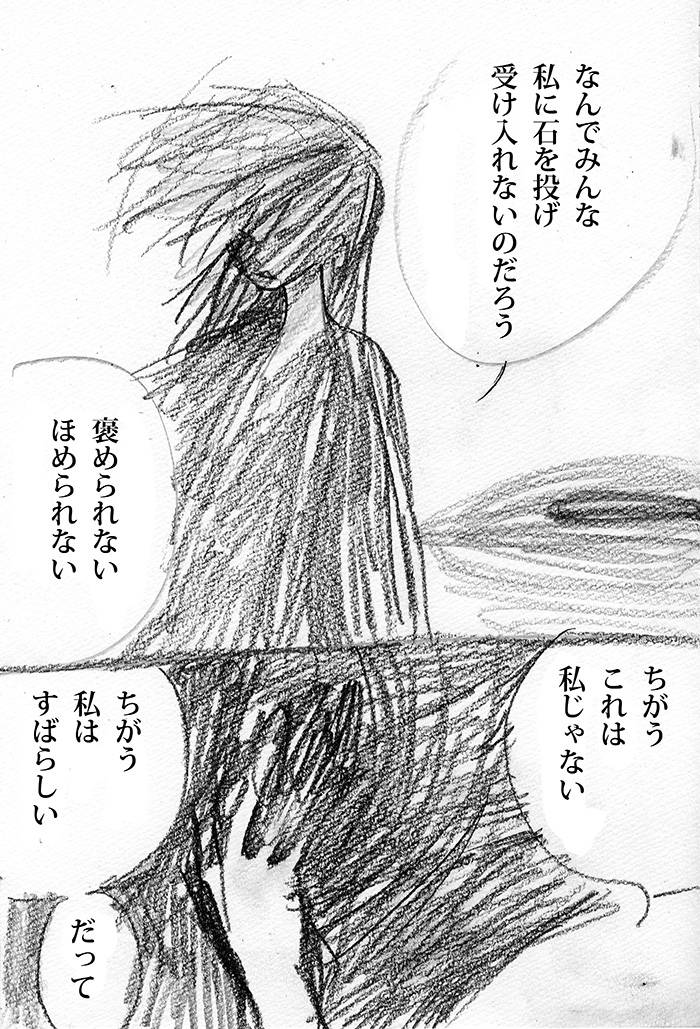 なんでみんな
私に石を投げ
受け入れないのだろう
褒められない
ほめられない
ちがう
これは
私じゃない
ちがう
私は
すばらしい
だって